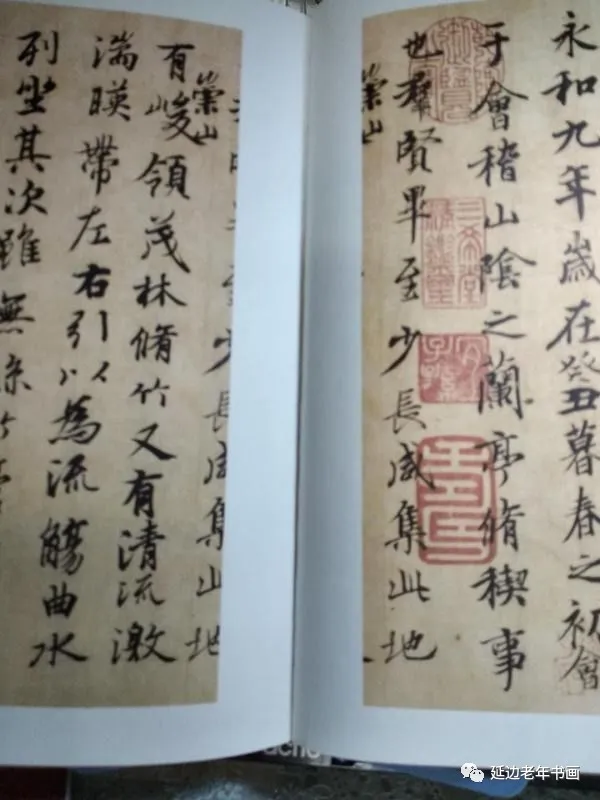 永和九年歲在癸丑暮春之初會
于會稽山陰之蘭亭脩稧事
也羣賢畢至少長咸集此地
崇山
三希堂
宜子孫
至少長咸集此地
崇山
有峻領茂林脩竹又有清流激
湍暎帶左右引以為流觴曲水
列坐其次雖無
延边老年书画